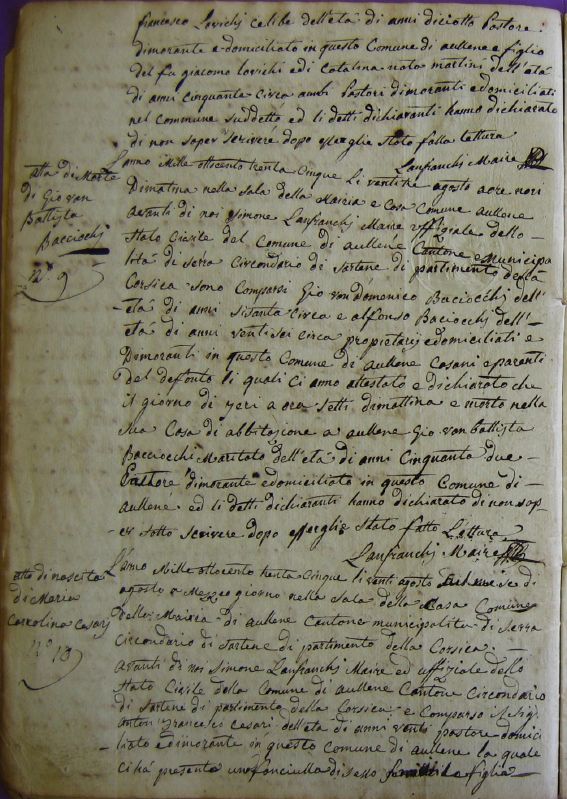 francesco Lovichj celibe dell'età di anni diciotto Pastore
dimorante e domiciliato in questo Comune di aullene e figlio
del fu giacomo lovichi e di Catalina nata martini dell'età
di anni cinquanta circa ambi Pastori dimoranti e domiciliati
nel commune suddetto ed li detti dichiaranti hanno dichiarato
di non saper scrivere dopo esserglie stato fatta lettura
Lanfranchi Maire
atto di Morte
di Gio van
Battista
Bacciochj
n.º 9
L'anno Mille ottocento trenta Cinque li ventitre agosto a ore novi
Dimatina nella Sala della Mairia e Casa Comune aullene
avanti di noi simone Lanfranchj Maire uffiziale dello
Stato Civile del Comune di aullene Cantone e Municipa
lità di serra Circondario di Sartene di partimento della
Corsica sono Comparsi Gio van Domenico Baciocchj dell'
età di anni sisanta circa e alfonso Baciocchj dell'
età di anni venti sei circa propietarij e domiciliati e
Dimoranti in questo Comune di aullene e parenti
del defonto li quali ci anno attestato e dichiarato che
il giorno di yeri a ora setti dimattina e morto nella
sua Casa di abbitazione a aullene Gio van battista
Bacciocchi Maritato dell'età di anni Cinquanta due
Pastore dimorante e domiciliato in questo Comune di
aullene ed li detti dichiaranti hanno dichiarato di non sap
er sotto scrivere dopo esserglie stato fatto Lettura
Lanfranchj Maire
atto di nascita
di Maria
Carolina Cesarj
nº 13
L'anno Mille ottocento trenta cinque li venti agosto di
agosto a Mezzo giorno nella Sala della Casa Comune
della Mairia di aullene Cantone municipalita di Serra
Circondario di Sartene di partimento della Corsica
avanti di noi Simone Lanfranchj Maire ed uffiziale dello
Stato Civile della Comune di aullene Cantone Circondario
di Sartene di partimento della Corsica e Comparso
anton francesco Cesari dell'età di anni venti pastore domici
liato e dimorante in questo comune di aullene la quale
ci há presenta una fanciulla di sesso figlia